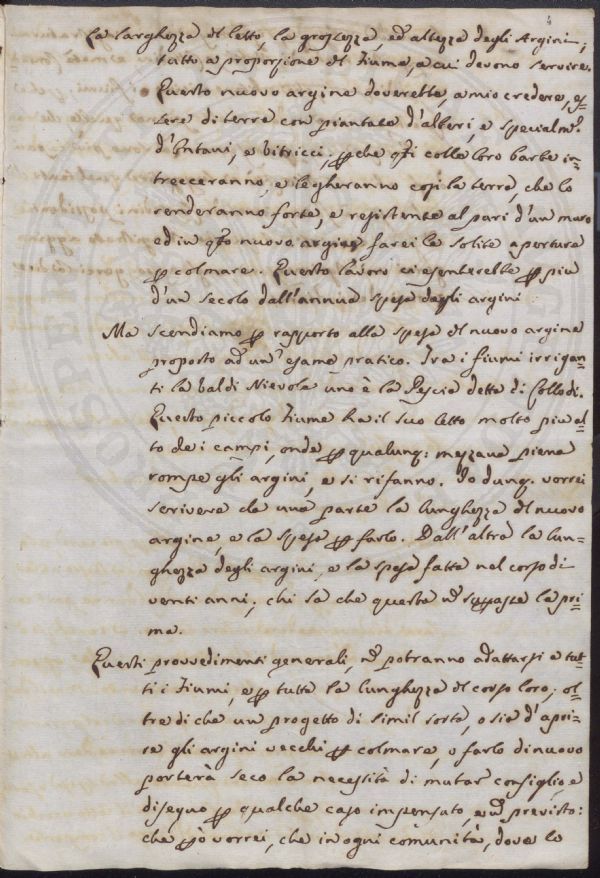 4
la larghezza del letto, la grossezza, ed altezza degli Argini,
tutto a proporzione del Fiume, a cui devono servire.
Questo nuovo argine doverebbe, a mio credere, es=
sere di terra con piantate d'alberi, e specialm.e
d'Ontani, e Vitricci, pche qti colle loro barbe in=
trecceranno, e legheranno così la terra, che lo
renderanno forte, e resistente al pari d'un muro
ed in qto nuovo argine farei le solite aperture
p colmare. Questo lavoro ci esenterebbe p più
d'un secolo dall'annua spesa degli argini
Ma scendiamo p rapporto alla spesa del nuovo argine
proposto ad un'esame pratico. Tra i fiumi irrigan=
ti la Valdi Nievole uno è la Pescia detta di Collodi.
Questo piccolo Fiume ha il suo letto molto più al=
to de i campi, onde p qualunq: mezzana piena
rompe gli argini, e si rifanno. Io dunq. vorrei
scrivere da una parte la lunghezza del nuovo
argine, e la spesa p farlo. Dall'altra la lun=
ghezza degli argini, e la spesa fatta nel corso di
venti anni; chi sa che questa nō supasse la pri=
ma.
Questi provvedimenti generali, nō potranno adattarsi a tut=
ti i Fiumi, e p tutta la lunghezza del corso loro; ol=
tre di che un progetto di simil sorta, o sia d'apri=
re gli argini vecchi p colmare, o farlo di nuovo
porterà seco la necessità di mutar consiglio, e
disegno p qualche caso impensato, e nō previsto:
che pò vorrei, che in ogni comunità, dove lo